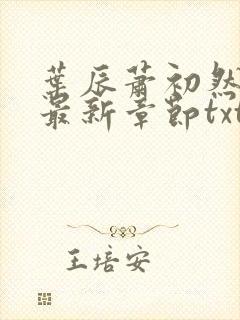 葉辰蕭初然
最新章節txt
王培安